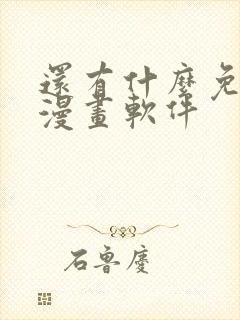 還有什麼免
漫畫軟件
石魯慶